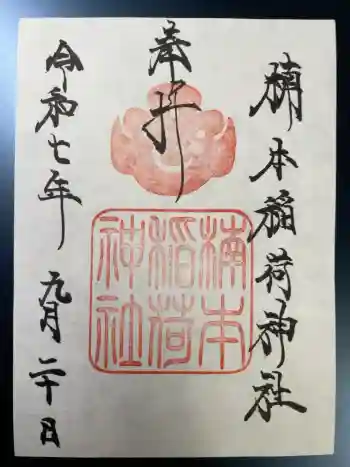 楠本稲荷神社
奉拝
楠本
稲荷
神社
令和七年 九月二十日